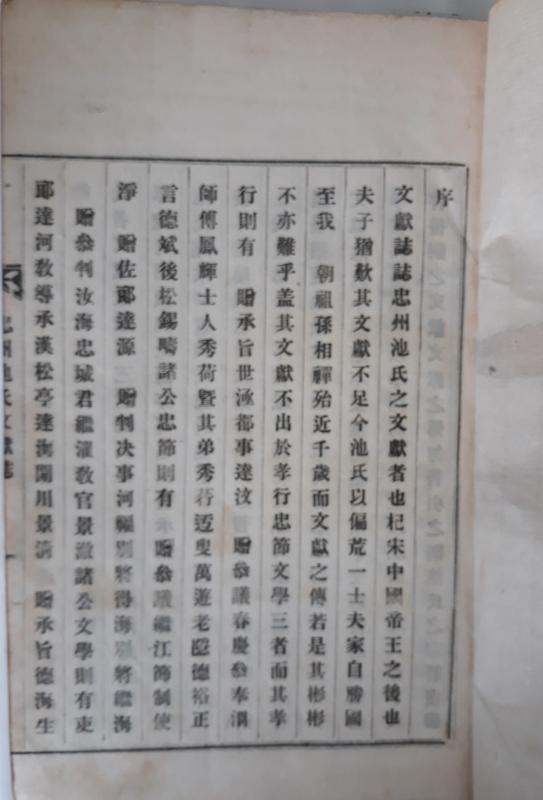 序
文獻誌誌忠州池氏之文獻者也杞宋中國帝王之後也
夫子猶歎其文獻不足今池氏以偏荒一士夫家自勝國
至我 朝祖孫相禪殆近千歲而文獻之傳若是其彬彬
不亦難乎盖其文獻不出於孝行忠節文學三者而其孝
行則有 贈承旨世涵都事達汶 贈參議春慶參奉溝
師傅鳳輝士人秀荷暨其弟秀 叟萬遊老隱德裕正
言德斌後松錫疇諸公忠節則有 贈參議繼江節制使
淨 贈佐郞達源 贈判決事河福別將得海別將繼海
贈參判汝海忠城君繼灌敎官景濂諸公文學則有吏
郞達河敎導承漢松亭達海聞川景淌 贈承旨德海生
忠州池氏文獻誌